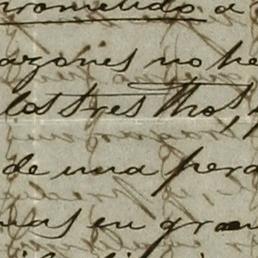 prometido a
razones no he
los tres Thos,
de una perd
mas en gran